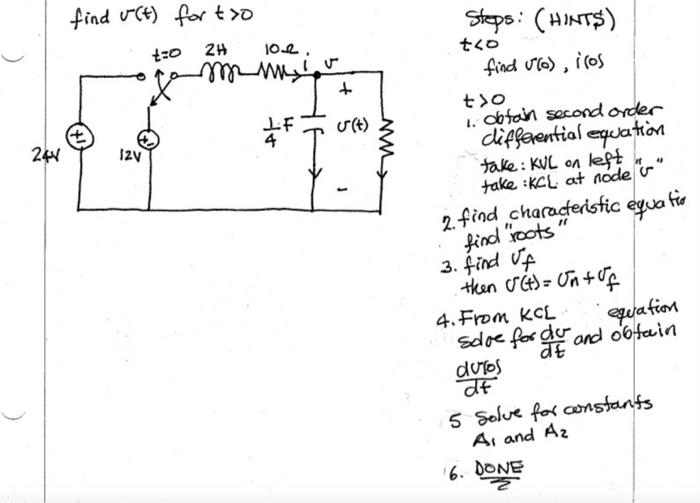 find v(t) for t>0
t=0 2H 10Ω i v
+
1/4 F v(t)
24V
12V
-
Steps: (HINTS)
t<0
find v(0), i(0)
t>0
1. obtain second order
differential equation
take: KVL on left
take: KCL at node "v"
2. find characteristic equatio
find "roots"
3. find vf
then v(t) = vn + vf
4. From KCL equation
solve for dv/dt and obtain
dv(0)/dt
5 Solve for constants
A1 and A2
6. DONE